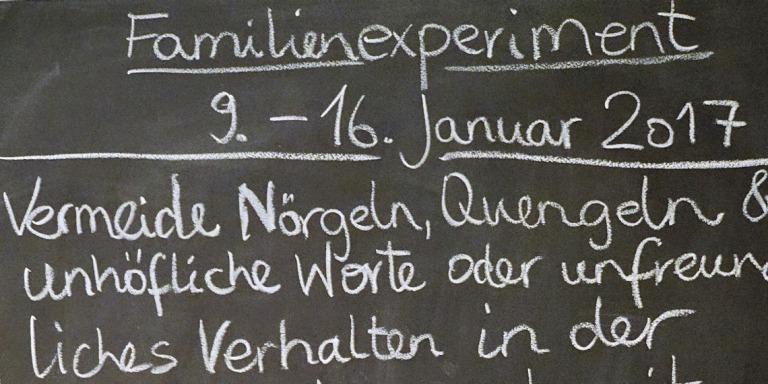 Familienexperiment
9. – 16. Januar 2017
Vermeide Nörgeln, Quengeln &
unhöfliche Worte oder unfreund
liches Verhalten in der